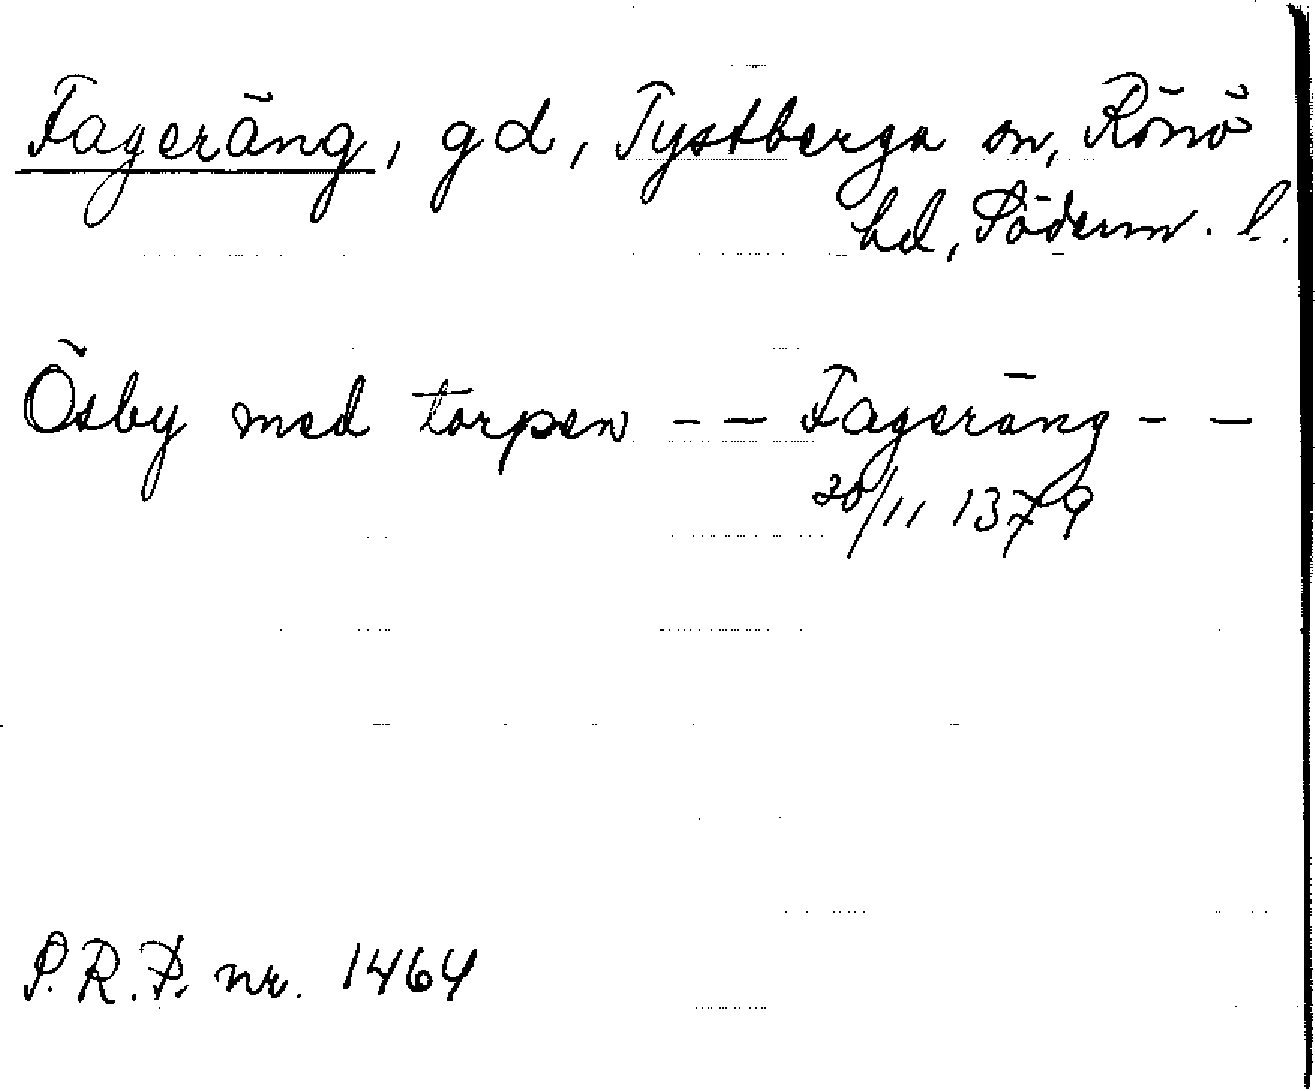 Fageräng, gd, Tystberga sn, Rönö
hd, Söderm. l.
Ösby med torpen - - Fageräng - -
20/11 1379
S.R.P. nr. 1464